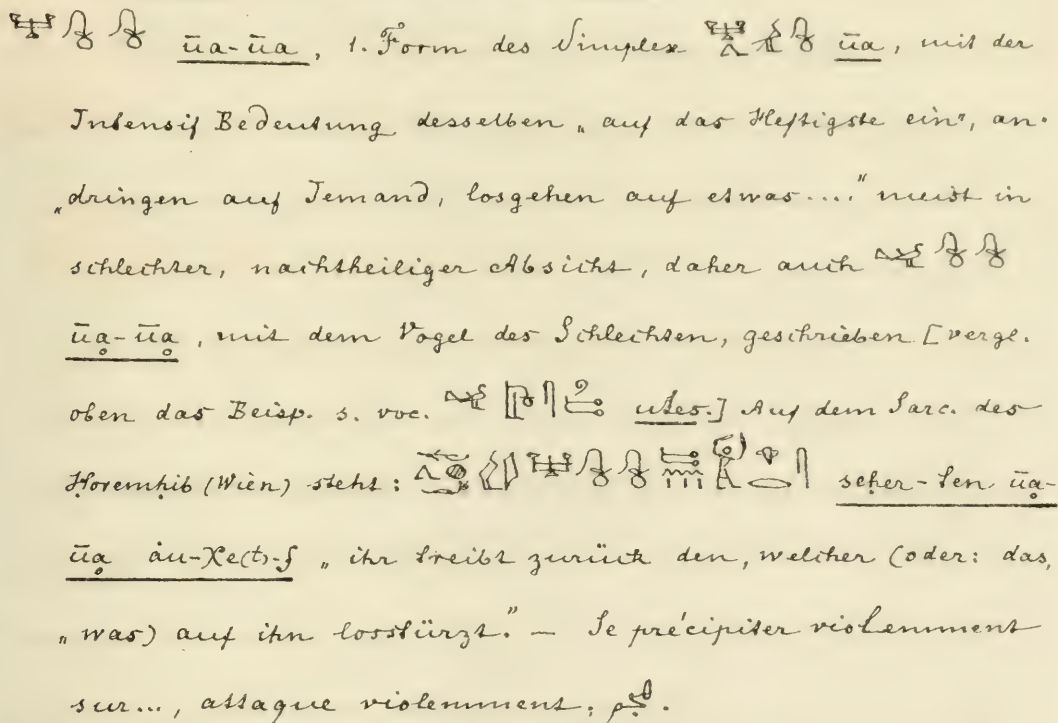 ūa-ūa, 1. Form des Simplex ūa, mit der
Intensif Bedeutung desselben „auf das Heftigste ein-, an-
„dringen auf Jemand, losgehen auf etwas...." meist in
schlechter, nachtheiliger Absicht, daher auch
ūḁ-ūḁ, mit dem Vogel des Schlechten, geschrieben [vergl.
oben das Beisp. s. voc. utes.] Auf dem Sarc. des
Ḥoremḥib (Wien) steht: seḥer-ten ūa-
ūḁ àu-χe(t)-f „ihr treibt zurück den, welcher (oder: das,
„was) auf ihn losstürzt." — Se précipiter violemment
sur..., attaque violemment.